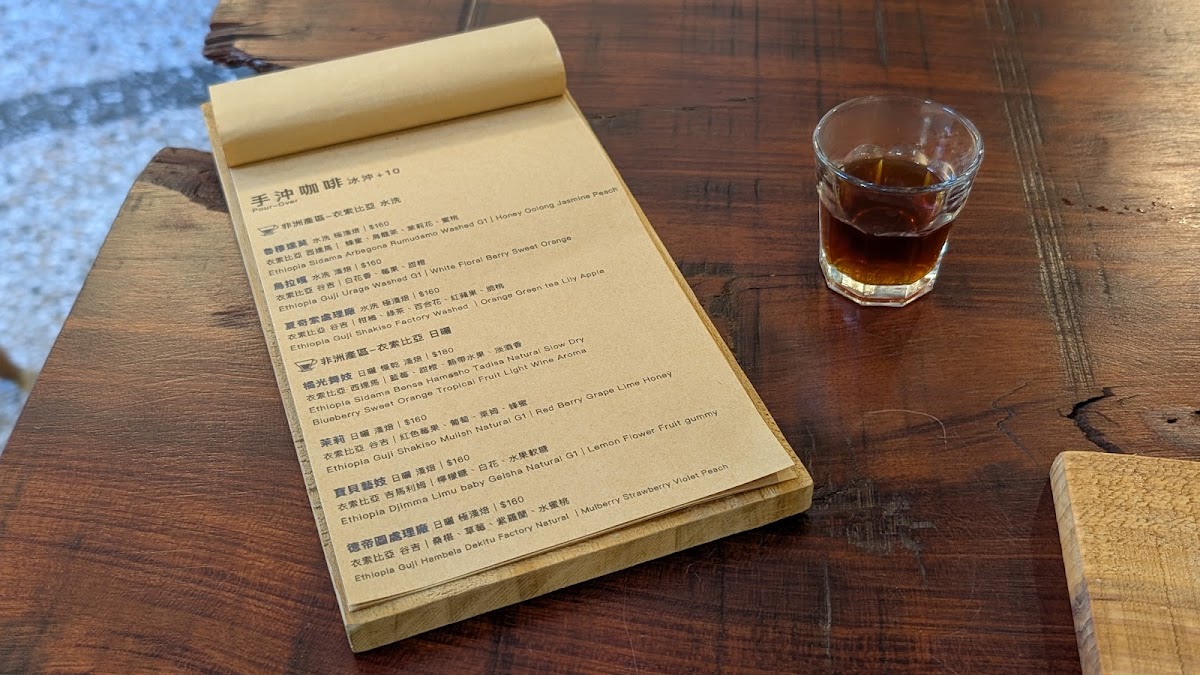 手沖咖啡 冰沖+10
Pour-Over
非洲產區-衣索比亞 水洗
魯穆達莫 水洗 極淺焙 | $160
衣索比亞 西達馬 | 蜂蜜、烏龍茶、茉莉花、蜜桃
Ethiopia Sidama Arbegona Rumudamo Washed G1 | Honey Oolong Jasmine Peach
烏拉嘎 水洗 淺焙 | $160
衣索比亞 谷吉 | 白花香、莓果、甜橙
Ethiopia Guji Uraga Washed G1 | White Floral Berry Sweet Orange
夏奇索處理廠 水洗 極淺焙 | $160
衣索比亞 谷吉 | 柑橘、綠茶、百合花、紅蘋果、脆桃
Ethiopia Guji Shakiso Factory Washed | Orange Green tea Lily Apple
非洲產區-衣索比亞 日曬
橘光舞妓 日曬 慢乾 淺焙 | $180
衣索比亞 西達馬 | 藍莓、甜橙、熱帶水果、淡酒香
Ethiopia Sidama Bensa Hamasho Tadisa Natural Slow Dry
Blueberry Sweet Orange Tropical Fruit Light Wine Aroma
茉莉 日曬 淺焙 | $160
衣索比亞 谷吉 | 紅色莓果、葡萄、萊姆、蜂蜜
Ethiopia Guji Shakiso Mulish Natural G1 | Red Berry Grape Lime Honey
寶貝藝妓 日曬 淺焙 | $160
衣索比亞 吉馬利姆 | 檸檬糖、白花、水果軟糖
Ethiopia Djimma Limu baby Geisha Natural G1 | Lemon Flower Fruit gummy
德帝圖處理廠 日曬 極淺焙 | $160
衣索比亞 谷吉 | 桑椹、草莓、紫羅蘭、水蜜桃
Ethiopia Guji Hambela Dekitu Factory Natural | Mulberry Strawberry Violet Peach